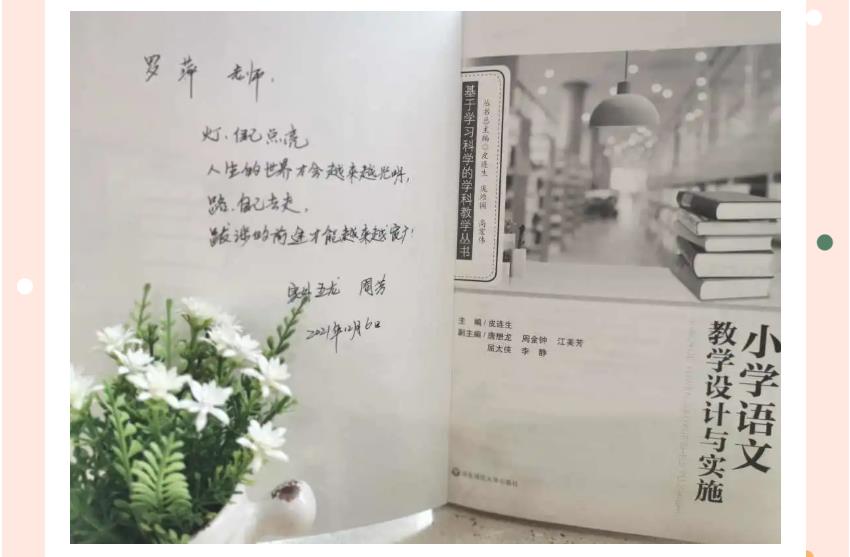 罗萍 老师：
灯，自己点亮
人生的世界才会越来越光明，
路，自己去走，
跋涉的前途才能越来越宽广！
周芳
2021年12月6日
基于学习科学的学科教学丛书
丛书总主编◎皮连生 庞维国 高宏伟
主 编/皮连生
副主编/唐懋龙 周金钟 江美芳
屈太侠 李 静
小学语文
教学设计与实施
华东师范大学出版社